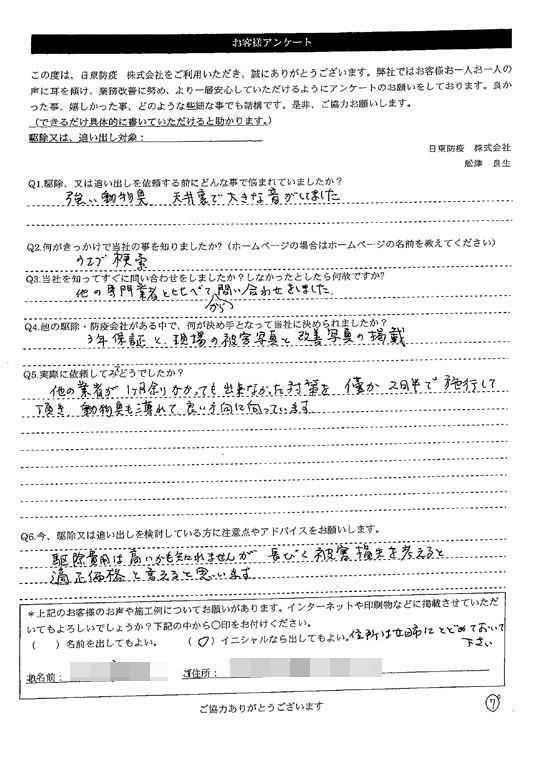 お客様アンケート
この度は、日東防疫 株式会社をご利用いただき、誠にありがとうございます。弊社ではお客様お一人お一人の
声に耳を傾け、業務改善に努め、より一層安心していただけるようにアンケートのお願いをしております。良か
った事、嬉しかった事、どのような些細な事でも結構です。是非、ご協力お願いします。
（できるだけ具体的に書いていただけると助かります。）
駆除又は、追い出し対象：
日東防疫 株式会社
舩津 良生
Q1.駆除、又は追い出しを依頼する前にどんな事で悩まれていましたか？
強い動物臭 天井裏で大きな音がしてました
Q2.何がきっかけで当社の事を知りましたか?（ホームページの場合はホームページの名前を教えてください）
ウエブ検索
Q3.当社を知ってすぐに問い合わせをしましたか？しなかったとしたら何故ですか？
他の専門業者とくらべてから問い合わせをしました。
Q4.他の駆除・防疫会社がある中で、何が決め手となって当社に決められましたか？
3年保証と、現場の被害写真と改善写真の掲載
Q5.実際に依頼してみてどうでしたか？
他の業者が1ヶ月余りかかっても出来なかった対策を 僅か2日半で施行して
頂き 動物臭も薄れて良い方向に向っています
Q6.今、駆除又は追い出しを検討している方に注意点やアドバイスをお願いします。
駆除費用は高いかも知れませんが 長びく被害 を考えると
適正価格と言えると思います
＊上記のお客様のお声や施工例についてお願いがあります。インターネットや印刷物などに掲載させていただ
いてもよろしいでしょうか？下記の中から〇印をお付けください。
（ ）名前を出してもよい。 （〇）イニシャルなら出してもよい。住所は 市にとどめておいて
下さい
お名前： ご住所：
ご協力ありがとうございます
⑦